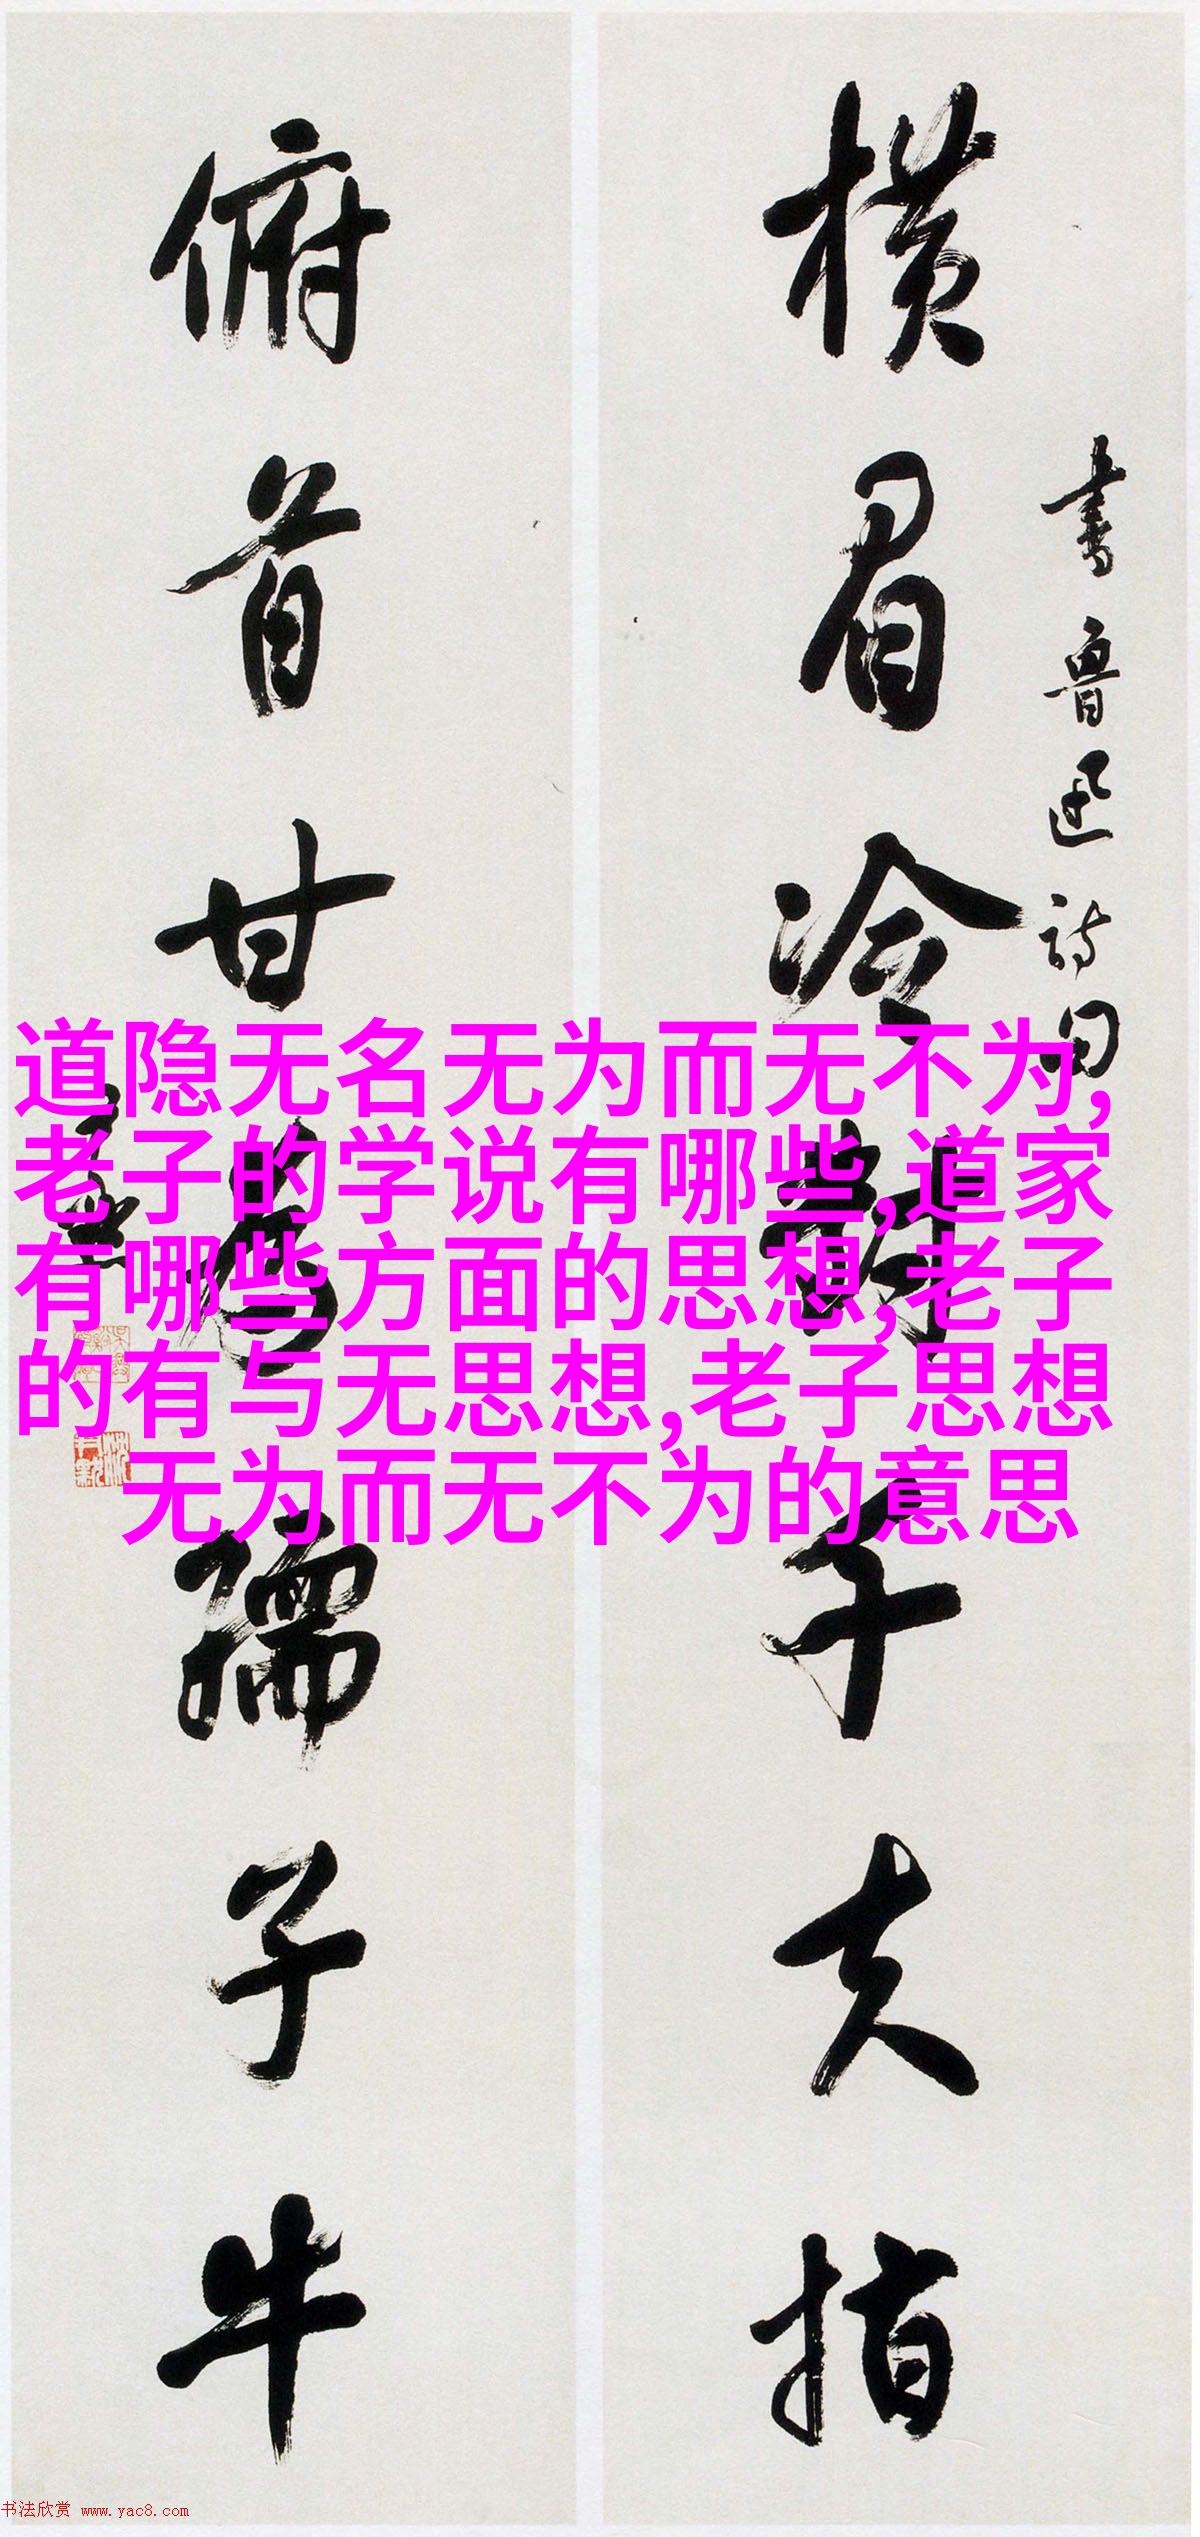 横眉冷對千夫指
书鲁迅诗句
俯首甘为孺子牛
道隐无名无为而无不为,
老子的学说有哪些,道家
有哪些方面的思想,老子
的有与无思想,老子思想
无为而无不为的意思
书法欣赏 www.yac8.com